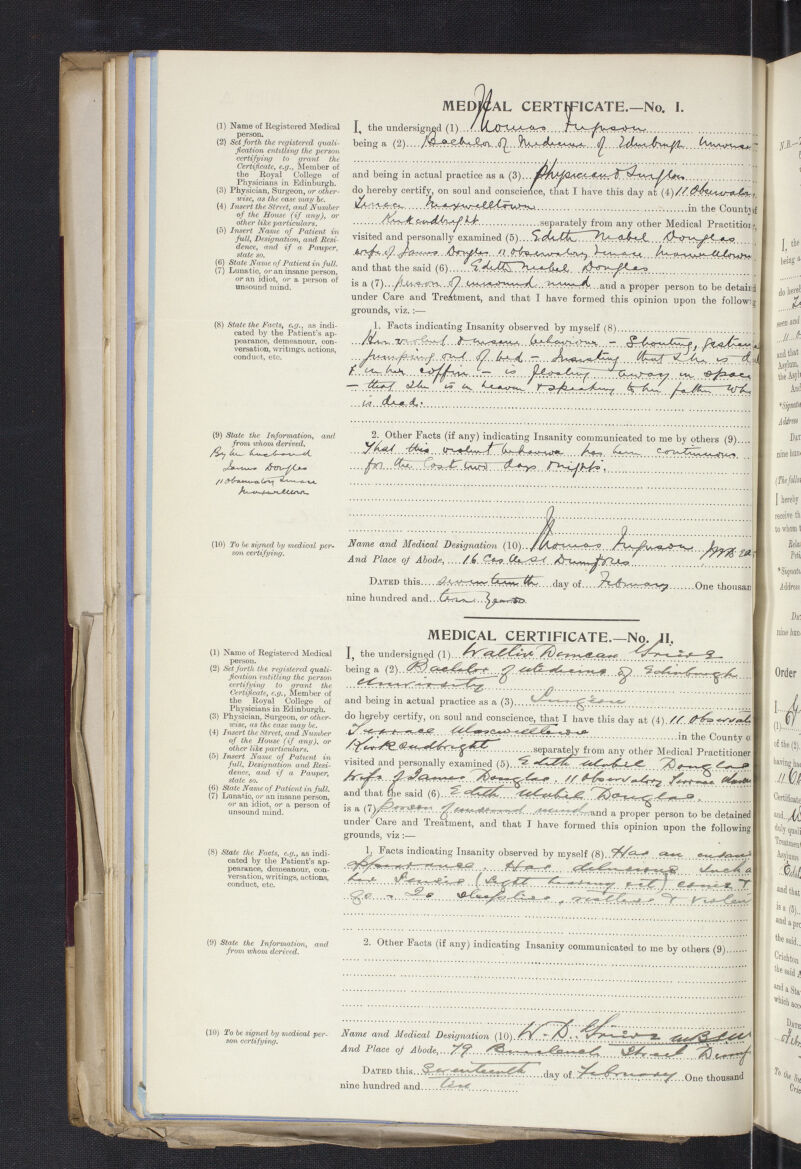 MEDICAL CERTIFICATE.—No. I.
(1) Name of Registered Medical person.
(2) Set forth the registered qualification entitling the person certifying to grant the Certificate, e.g., Member of the Royal College of Physicians in Edinburgh.
(3) Physician, Surgeon, or otherwise, as the case may be.
(4) Insert the Street, and Number of the House (if any), or other like particulars.
(5) Insert Name of Patient in full, Designation, and Residence, and if a Pauper, state so.
(6) State Name of Patient in full.
(7) Lunatic, or an insane person, or an idiot, or a person of unsound mind.
I, the undersigned (1) Thomas Ferguson
being a (2) Bachelor of Medicine of Edinburgh Univers
and being in actual practice as a (3) Physician & Surgeon
do hereby certify, on soul and conscience, that I have this day at (4) 11 Observatory
Terrace Maxwelltown in the County of
Kirkcudbright separately from any other Medical Practitioner
visited and personally examined (5) Edith Mabel Douglas
wife of James Douglas 11 Observatory Terrace Maxwelltown
and that the said (6) Edith Mabel Douglas
is a (7) person of unsound mind and a proper person to be detained
under Care and Treatment, and that I have formed this opinion upon the following
grounds, viz. :—
(8) State the Facts, e.g., as indicated by the Patient's appearance, demeanour, conversation, writings, actions, conduct, etc.
1. Facts indicating Insanity observed by myself (8)
Her violent & insane behaviour – Shouting,
jumping out of bed – Insisting that she is d
& in her coffin – is floating away in space
– that she is in heaven & speaking to her father who
is dead.
(9) State the Information, and from whom derived.
By her husband
James Douglas
11 Observatory Terrace
Maxwelltown
2. Other Facts (if any) indicating Insanity communicated to me by others (9)
That this violent behaviour has been continuous
for the last two days & nights.
(10) To be signed by medical person certifying.
Name and Medical Designation (10) Thomas Ferguson MB
And Place of Abode, 16 Castle St Dumfries
DATED this seventeenth day of February One thousan
nine hundred and ten years
MEDICAL CERTIFICATE.—No. II.
(1) Name of Registered Medical person.
(2) Set forth the registered qualification entitling the person certifying to grant the Certificate, e.g., Member of the Royal College of Physicians in Edinburgh.
(3) Physician, Surgeon, or otherwise, as the case may be.
(4) Insert the Street, and Number of the House (if any), or other like particulars.
(5) Insert Name of Patient in full, Designation, and Residence, and if a Pauper, state so.
(6) State Name of Patient in full.
(7) Lunatic, or an insane person, or an idiot, or a person of unsound mind.
I, the undersigned (1) Duncan
being a (2) Bachelor of Medicine of Edinburgh
University
and being in actual practice as a (3) Surgeon
do hereby certify, on soul and conscience, that I have this day at (4) 11 Observat
Terrace Maxwelltown in the County o
Kirkcudbright separately from any other Medical Practitioner
visited and personally examined (5) Edith Mabel Douglas
wife of James Douglas, 11 Observatory Terrace
and that the said (6) Edith Mabel Douglas.
is a (7) person of unsound mind and a proper person to be detained
under Care and Treatment, and that I have formed this opinion upon the following
grounds, viz :—
(8) State the Facts, e.g., as indicated by the Patient's appearance, demeanour, conversation, writings, actions, conduct, etc.
1. Facts indicating Insanity observed by myself (8) Has an insane
appearance. Has delusions
comes &
go. Is sleepless, restless & violen
(9) State the Information, and from whom derived.
2. Other Facts (if any) indicating Insanity communicated to me by others (9)
(10) To be signed by medical person certifying.
Name and Medical Designation (10) W. D.
And Place of Abode, 79 Buccleuch Street Dumf
DATED this Seventeenth day of February One thousand
nine hundred and ten